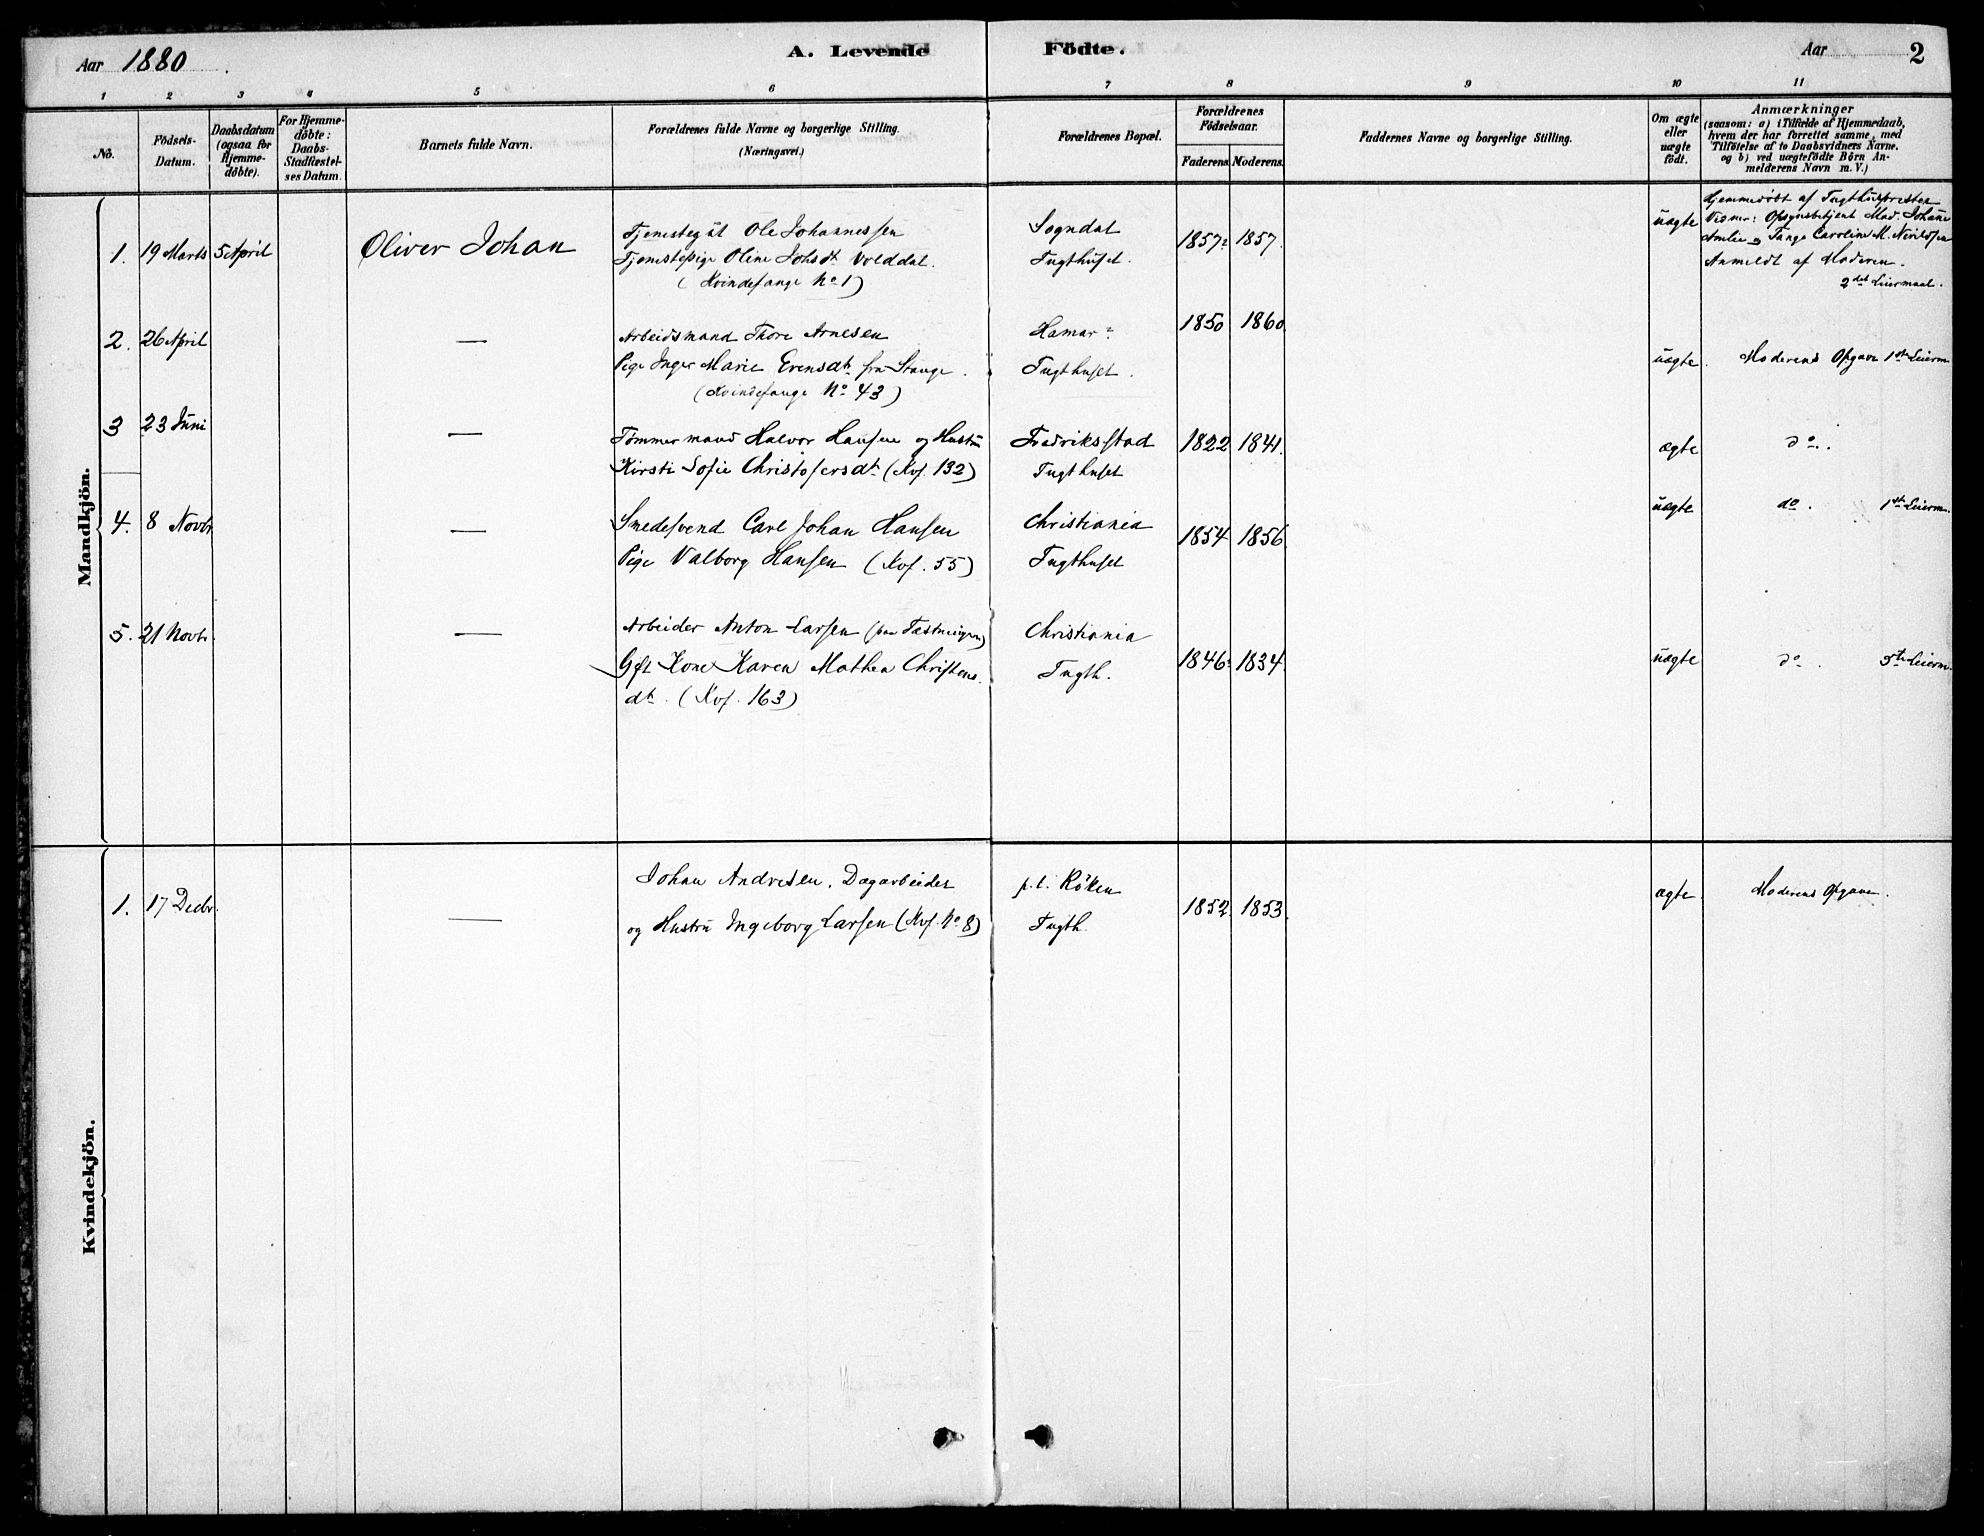 Aar 1880.
A. Levende Födte.
Aar 2
1 2 3 4 5 6 7 8 9 10 11
No.
Födsels-
Datum.
Daabsdatum
(ogsaa for
Hjemme-
døbte).
For Hjemme-
døbte:
Daabs-
Stadfæstel-
ses Datum.
Barnets fulde Navn.
Forældrenes fulde Navne og borgerlige Stilling.
(Næringsvei.)
Forældrenes Bopæl.
Forældrenes
Fødselsaar.
Faderens. Moderens.
Faddernes Navne og borgerlige Stilling.
Om ægte
eller
uægte
født.
Anmærkninger
(saasom: a) i Tilfælde af Hjemmedaab,
hvem der har forrettet samme, med
Tilføielse af to Daabsvidners Navne.
og b) ved uægtefødte Börn An-
melderens Navn m. V.)
Mandkjön.
1. 19 Marts 5 April Oliver Johan
Tjenestegut Ole Johannessen
Tjenestepige Oline Johsdt Volddal.
(Kvindefange No 1)
Sogndal
Tugthuset.
1857? 1857.
uægte
Hjemmedøbt af Tugthuspresten
Vidner: Opsynsbetjent Mad. Johane
Amlie og Fange Caroline M. Nerildsen
Anmeldt af Moderen.
2det Leiermaal.
2. 26 April —
Arbeidsmand Thore Arnesen
Pige Inger Marie Evensdt fra Stange.
(Kvindefange No 43)
Hamar?
Tugthuset.
1850 1860
uægte. Moderens Opgave 1st Leierm
3 23 Juni —
Tømmermand Halvor Hansen og Hustru
Kirsti Sofie Christofersdt (Kvf. 132)
Fredriksstad
Tugthuset
1822 1841.
ægte do.
4. 8 Novbr —
Smedesvend Carl Johan Hansen
Pige Valborg Hansen (Kvf. 55)
Christiania
Tugthuset
1854 1856.
uægte do. 1st Leierm.
5. 21 Novbr. —
Arbeider Anton Larsen (paa Fæstningen)
Gft Kone Karen Mathea Christens.
dt. (Kvf. 163)
Christiania
Tugth.
1846? 1834
uægte do. 5te Leierm.
Kvindekjön.
1. 17 Decbr. —
Johan Andresen, Dagarbeider
og Hustru Ingeborg Larsen (Kvf. No 8)
p.t. Røken
Tugth.
1852 1853
ægte. Moderens Opgave.